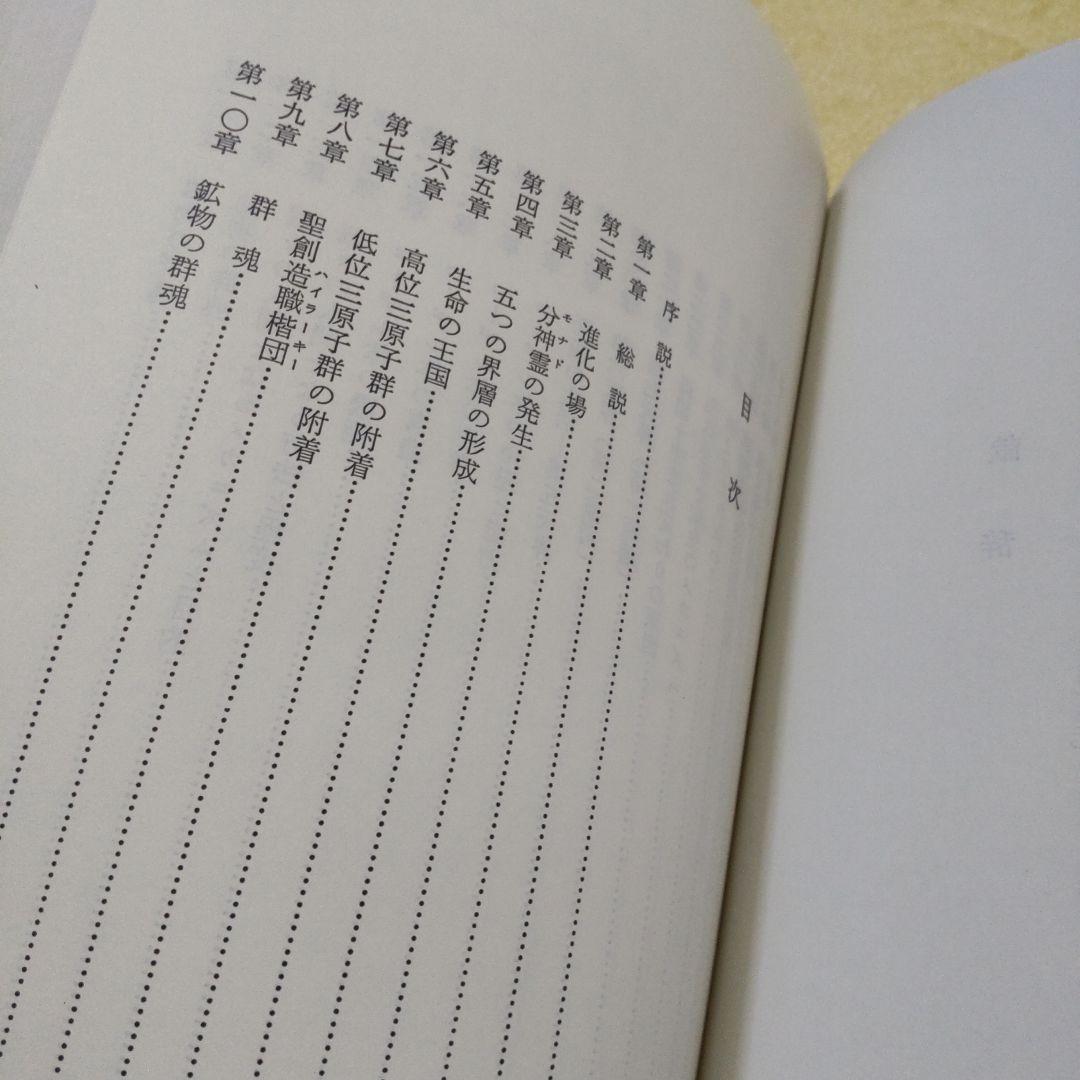 目次
序説……
第一章 総説……
第二章 進化の場……
モナド
第三章 分神霊の発生……
第四章 五つの界層の形成……
第五章 生命の王国……
第六章 高位三原子群の附着……
第七章 低位三原子群の附着……
ハイラーキー
第八章 聖創造職楷団……
第九章 群魂……
第一〇章 鉱物の群魂……